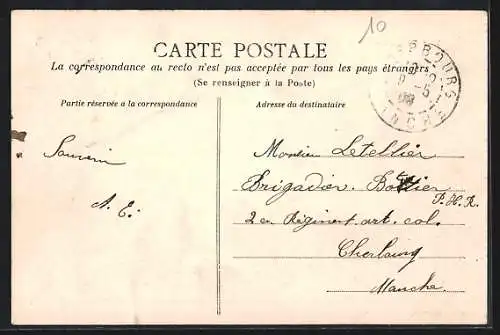 10
CARTE POSTALE
La correspondance au recto n'est pas acceptée par tous les pays étrangers
(Se renseigner à la Poste)
Partie réservée à la correspondance
Adresse du destinataire
BOURG
Souvenir
A. E.
Monsieur Letellier
Brigadier. Bottier
P. H. R.
2e Régiment art. col.
Cherbourg
Manche.